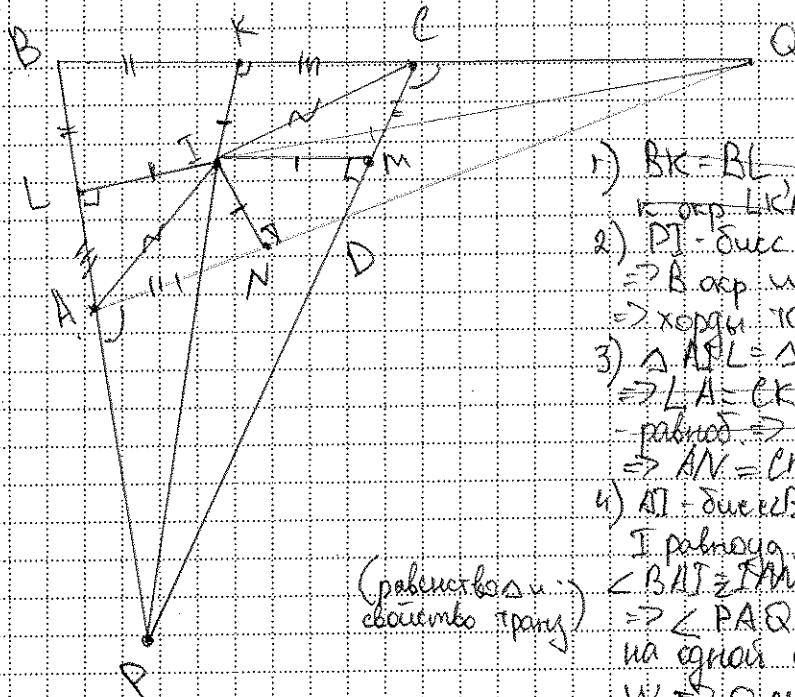 B K C Q
I
L M
A N D
P
1) BK = BL
к окр LK
2) PI - бисс
=> В окр
=> хорды
3) △ AIL = △
=> LA = CK
равноб. =>
=> AN = C
4) AI - бисс B
I равноуд.
(равенство △ и
свойство трапец)
< BAI = IAN
=> < PAQ
на одной